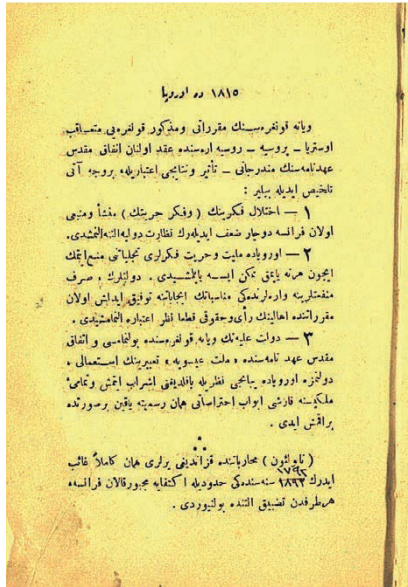 ١٨١٥ ده اوروپا
ويانه قونغره‌سنك مقرراتى ومذكور قونغره‌يى متعاقب
اوستريا ــ پروسيه ــ روسيه اره‌سنده عقد اولنان اتفاق مقدس
عهدنامه‌سنك مندرجاتى ــ تأثير ونتايجى اعتباريله، بروجه آتى
تلخيص ايديله بيلير :
١ — اختلال فكرينك ( وفكر حريتك ) منشأ ومنبعى
اولان فرانسه دوچار ضعف ايديله‌رك نظارت دوليه التنه آلنمشدى.
٢ — اوروپاده مليت وحريت فكرلرى تجلياتنى منع ايتمك
ايچون هرنه ياپمق ممكن ايسه ياپلمشيدى . دولتلرك ، صرف
منفعتلرينه وارەلرندەكى مناسباتك ايجاباتنه توفيق ايديلمش اولان
مقرراتنده اهالينك رأى وحقوقى قطعا نظر اعتباره آلنمامشيدى .
٣ — دولت عليه‌نك ويانه قونغره‌سنده بولنمامسى و اتفاق
مقدس عهد نامه‌سنده « ملت عيسويه » تعبيرينك استعمالى ،
دولتمزه اوروپاده يبانجى نظريله باقلديغنى اشراب ايتمش وتمامئ
ملكيه‌سنه قارشى ابواب احتراصاتى همان رسميته ياقين برصورتده
براقمش ايدى .
( ناپوليون ) محارباتنده قزانديغى يرلرى همان كاملاً غائب
ايدرك ١٨٩٢ ١٧٩٢ سنه‌سنده‌كى حدوديله اكتفايه مجبور قالان فرانسه،
هرطرفدن تضييق التنده بولنيوردى .